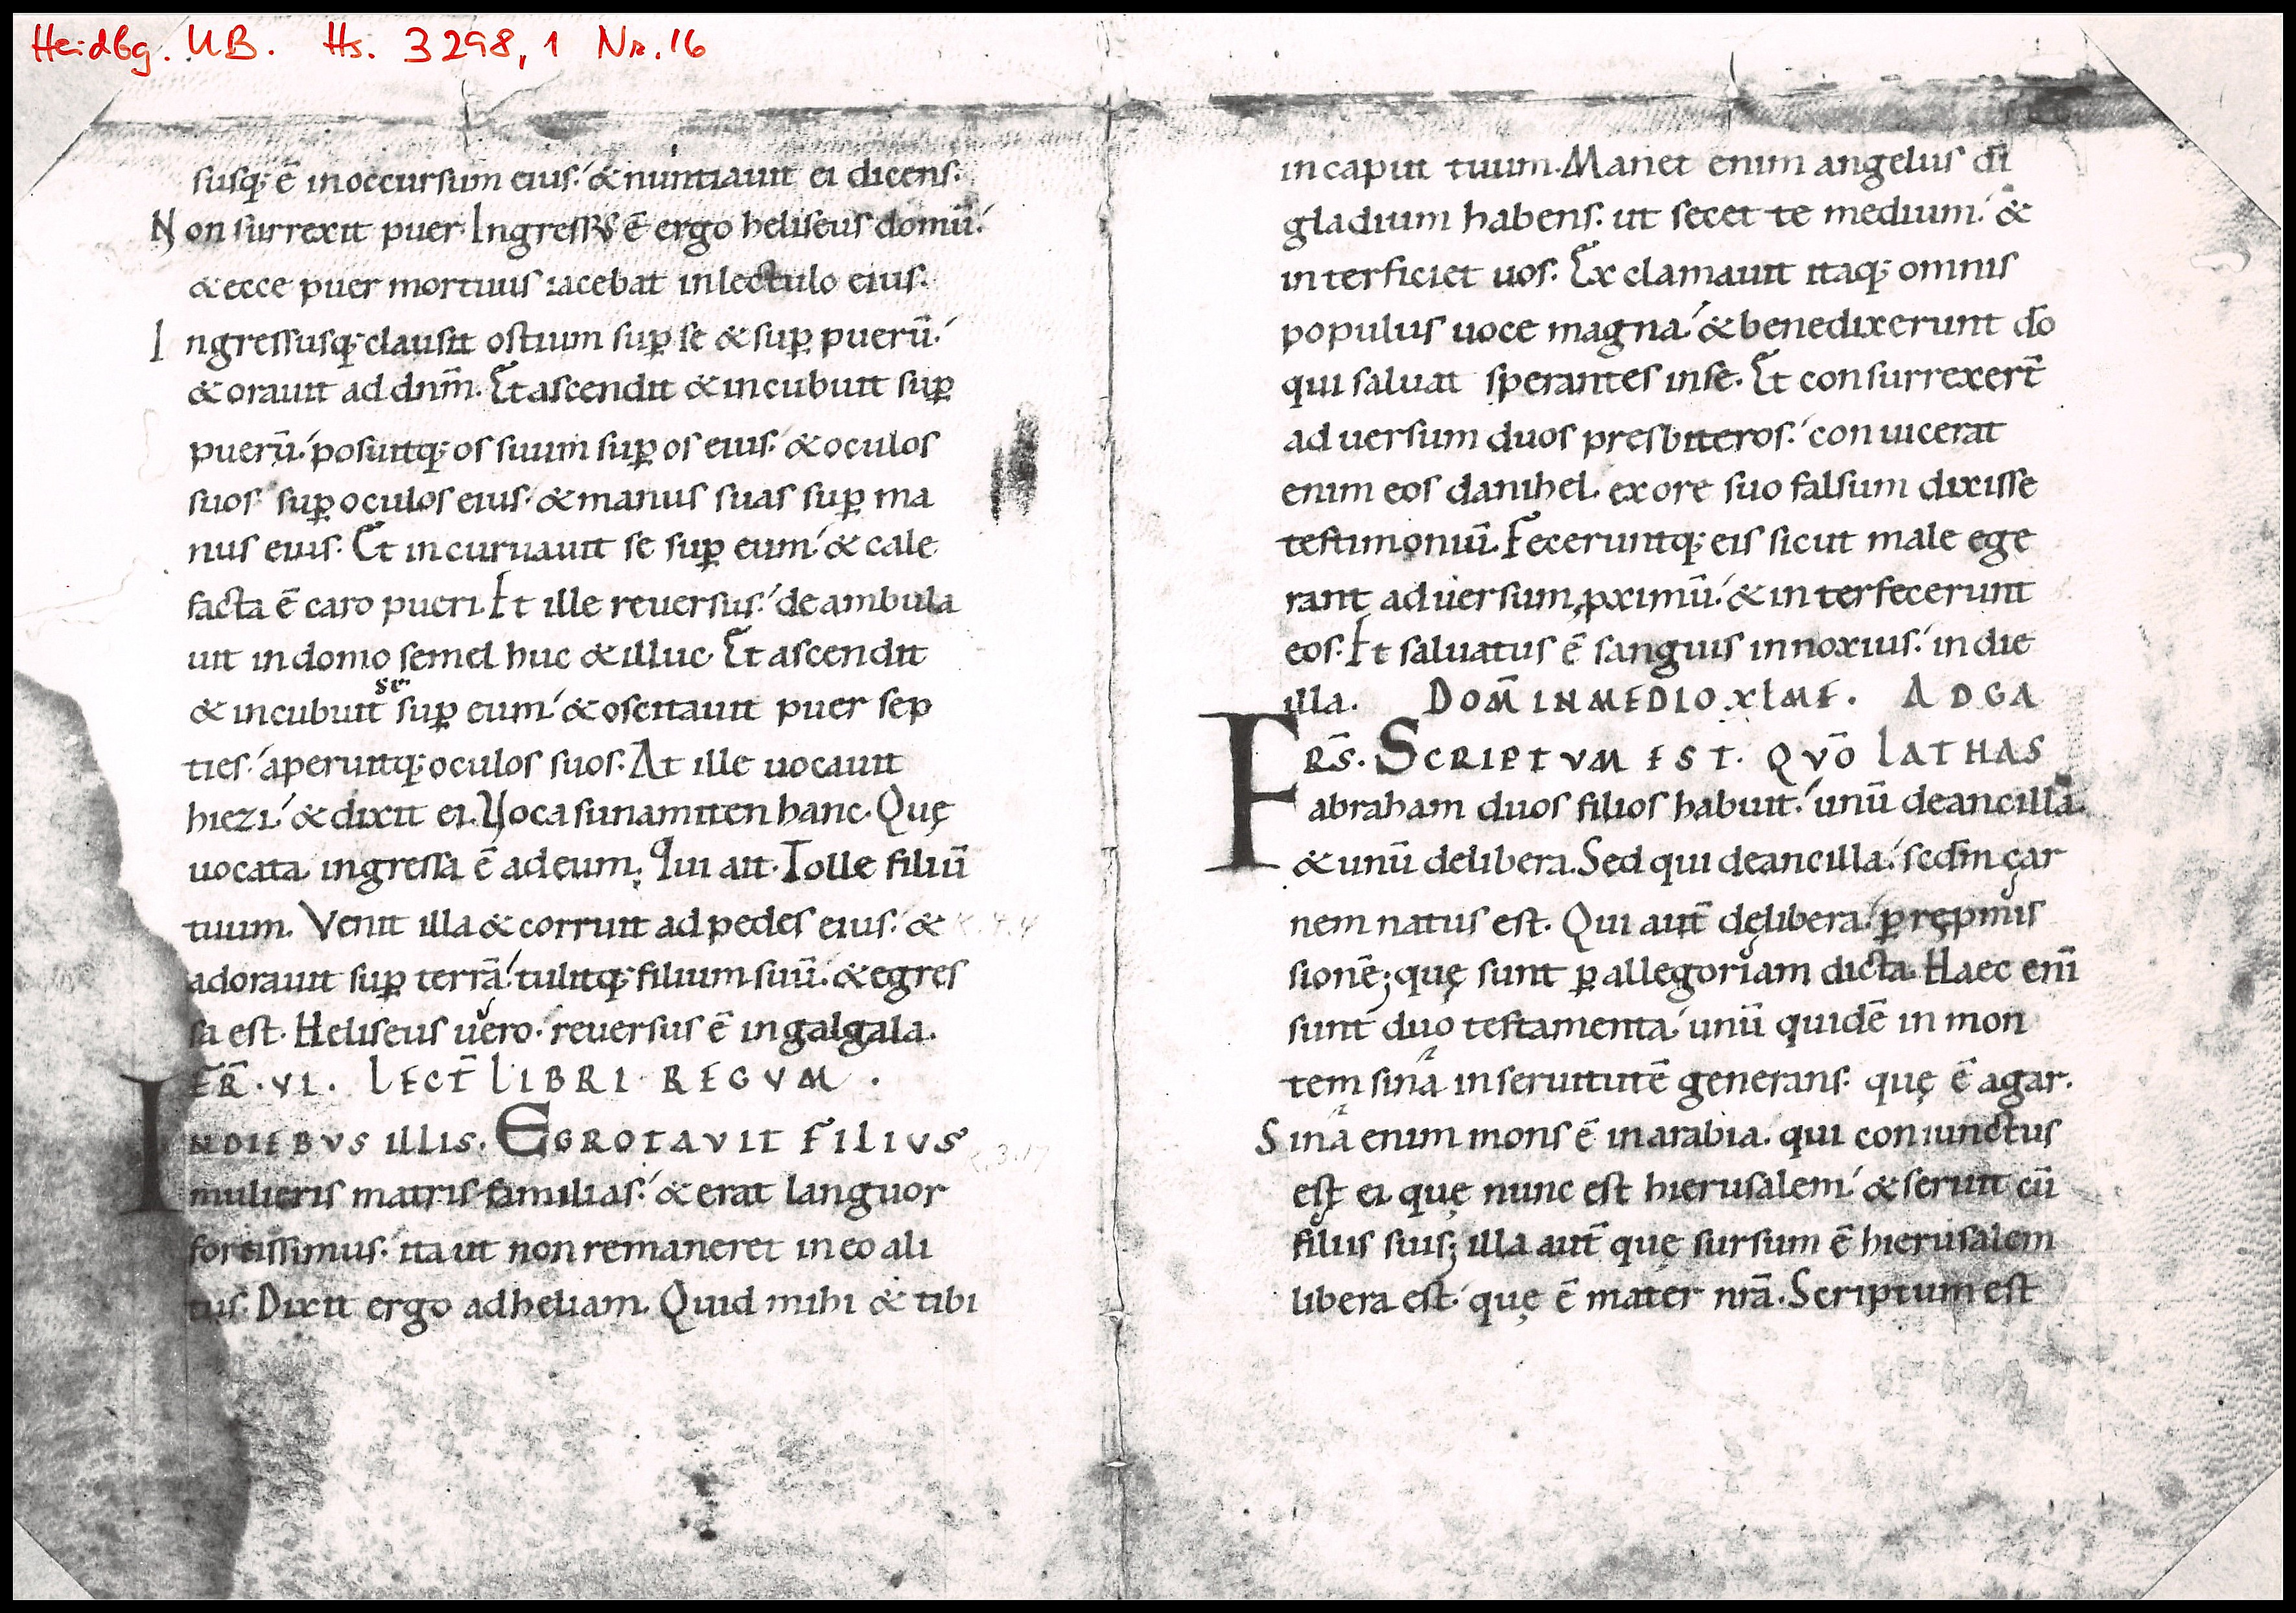 Heidbg. UB. Hs. 3298,1 Nr. 16
susq; ē inoccursum eius. & nuntiauit ei dicens.
Non surrexit puer. Ingressus ē ergo heliseus domū.
& ecce puer mortuus iacebat inlectulo eius.
Ingressusq; clausit ostium sup̱ se & sup̱ puerū.
& orauit ad dnm̄. Et ascendit & incubuit sup̱
puerū. posuitq; os suum sup̱ os eius. & oculos
suos sup̱ oculos eius. & manus suas sup̱ ma
nus eius. Et incuruauit se sup̱ eum. & cale
facta ē caro pueri. Et ille reuersus. deambula
uit indomo semel huc & illuc. Et ascendit
& incubuit sup̱ eum. & oscitauit puer sep
ties. aperuitq; oculos suos. At ille uocauit
hiezi. & dixit ei. Uoca sunamiten hanc. Quę
uocata ingressa ē ad eum. Qui ait. Tolle filiū
tuum. Venit illa & corruit ad pedes eius. &
adorauit sup̱ terrā. tulitq; filium suū. & egres
sa est. Heliseus uero. reuersus ē in galgala.
FER̄. VI. LECT̄ LIBRI REGVM.
INDIEBVS ILLIS. EGROTAVIT FILIVS
mulieris matris familias. & erat languor
fortissimus. ita ut non remaneret in eo ali
tus. Dixit ergo adheliam. Quid mihi & tibi
incaput tuum. Manet enim angelus dī
gladium habens. ut secet te medium. &
interficiet uos. Exclamauit itaq; omnis
populus uoce magna. & benedixerunt dō
qui saluat sperantes inse. Et consurrexer̄t
aduersum duos presbiteros. conuicerat
enim eos danihel. ex ore suo falsum dixisse
testimoniū. Feceruntq; eis sicut male ege
rant aduersum ꝓximū. & interfecerunt
eos. Et saluatus ē sanguis innoxius. in die
illa. DOM̄ INMEDIO XLME. ADGA
FRS̄. SCRIPTVM EST. QVŌ LATHAS
abraham duos filios habuit. unū deancillā.
& unū delibera. Sed qui deancilla. scdm̄ car
nem natus est. Qui aut̄ delibera. p̱ repmis
sionē; quę sunt p̱ allegoriam dicta. Haec enī
sunt duo testamenta. unū quidē in mon
tem sina inseruitutē generans. quę ē agar.
Sina enim mons ē inarabia. qui coniunctus
est ei quę nunc est hierusalem. & seruit cū
filiis suis; illa aut̄ quę sursum ē hierusalem
libera est. quę ē mater nrā. Scriptum est